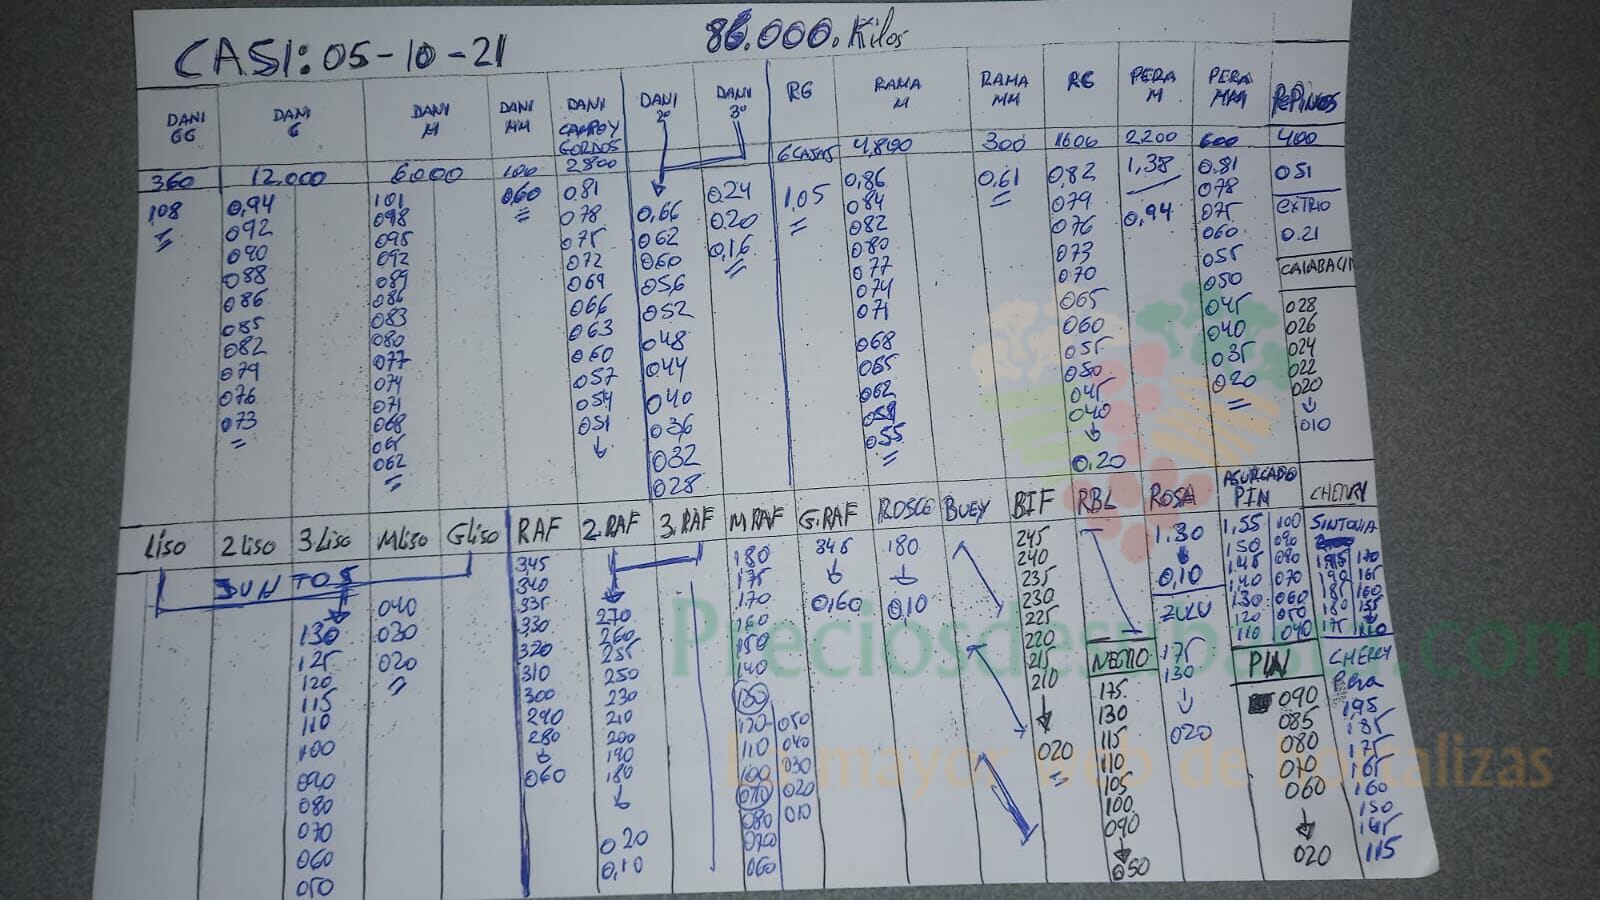 CASI: 05-10-21
86.000. Kilos
DANI GG
DANI G
DANI M
DANI MM
DANI CAMPOY GORDOS
DANI 2º
DANI 3º
RG
RAMA M
RAMA MM
RG
PERA M
PERA MM
PEPINOS
360
12.000
6.000
100
2800
6 CAJAS
4,800
300
1600
2,200
600
400
108
0,94
092
090
088
086
085
082
079
076
073
101
098
095
092
089
086
083
080
077
074
071
068
065
062
0,60
081
078
075
072
069
066
063
060
057
054
051
0,66
062
060
056
052
048
044
040
036
032
028
0,24
0,20
0,16
1,05
0,86
084
082
080
077
074
071
068
065
062
058
055
0,61
0,82
079
076
073
070
065
060
055
050
045
040
0,20
1,38
0,94
0.81
078
075
060
055
050
045
040
035
020
051
EXTRIO
0.21
CALABACIN
028
026
024
022
020
010
Liso
2 Liso
3 Liso
M Liso
G Liso
RAF
2.RAF
3.RAF
M RAF
G.RAF
ROSCO
BUEY
BIF
RBL
ROSA
ASURCADO PIN
CHERRY
JUNTOS
130
125
120
115
110
100
090
080
070
060
050
040
030
020
345
340
335
330
320
310
300
290
280
060
270
260
255
250
230
210
200
190
180
020
0,10
180
175
170
160
150
140
130
120 050
110 040
100 030
090 020
080 010
070
060
345
0,60
180
0,10
245
240
235
230
225
220
215
210
020
NEGRO
175
130
115
110
105
100
090
050
1.30
0,10
ZULU
175
130
020
1.55 100
150 090
1.45 080
140 070
130 060
120 050
110 040
PIN
090
085
080
070
060
020
SINTONIA
195 170
190 165
185 160
180 155
175
CHERRY
Pera
1,95
185
175
165
160
150
145
115
Preciosdesubasta.com
La mayor web de hortalizas